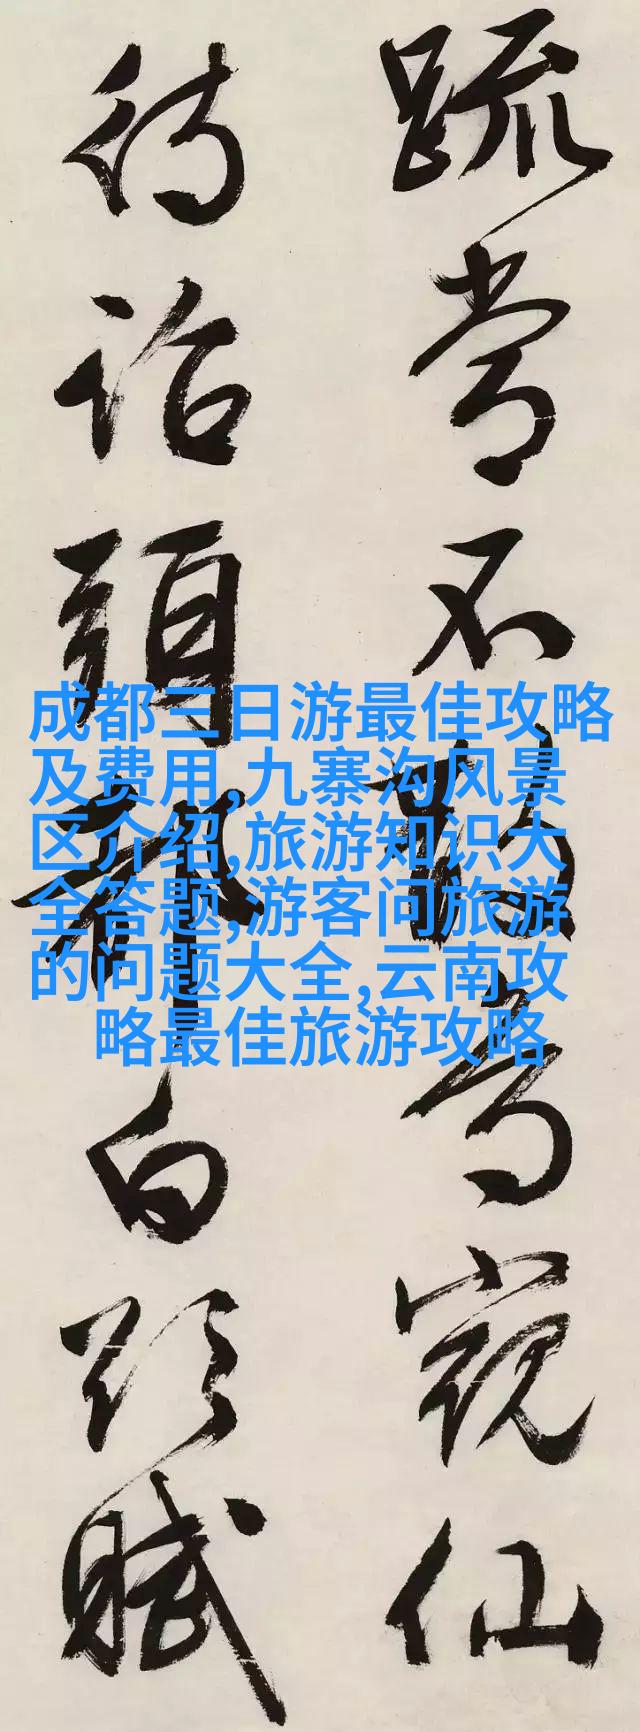 踈常不敢高窺仙
待詔頭都白賦
成都三日游最佳攻略
及费用,九寨沟风景
区介绍,旅游知识大
全答题,游客问旅游
的问题大全,云南攻
略最佳旅游攻略